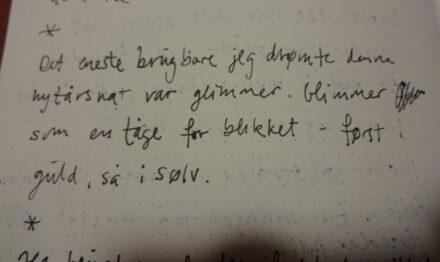 *
Det eneste brugbare jeg drømte denne
nytårsnat var glimmer. Glimmer
som en tåge for blikket - først i
guld, så i sølv.
*
Jeg